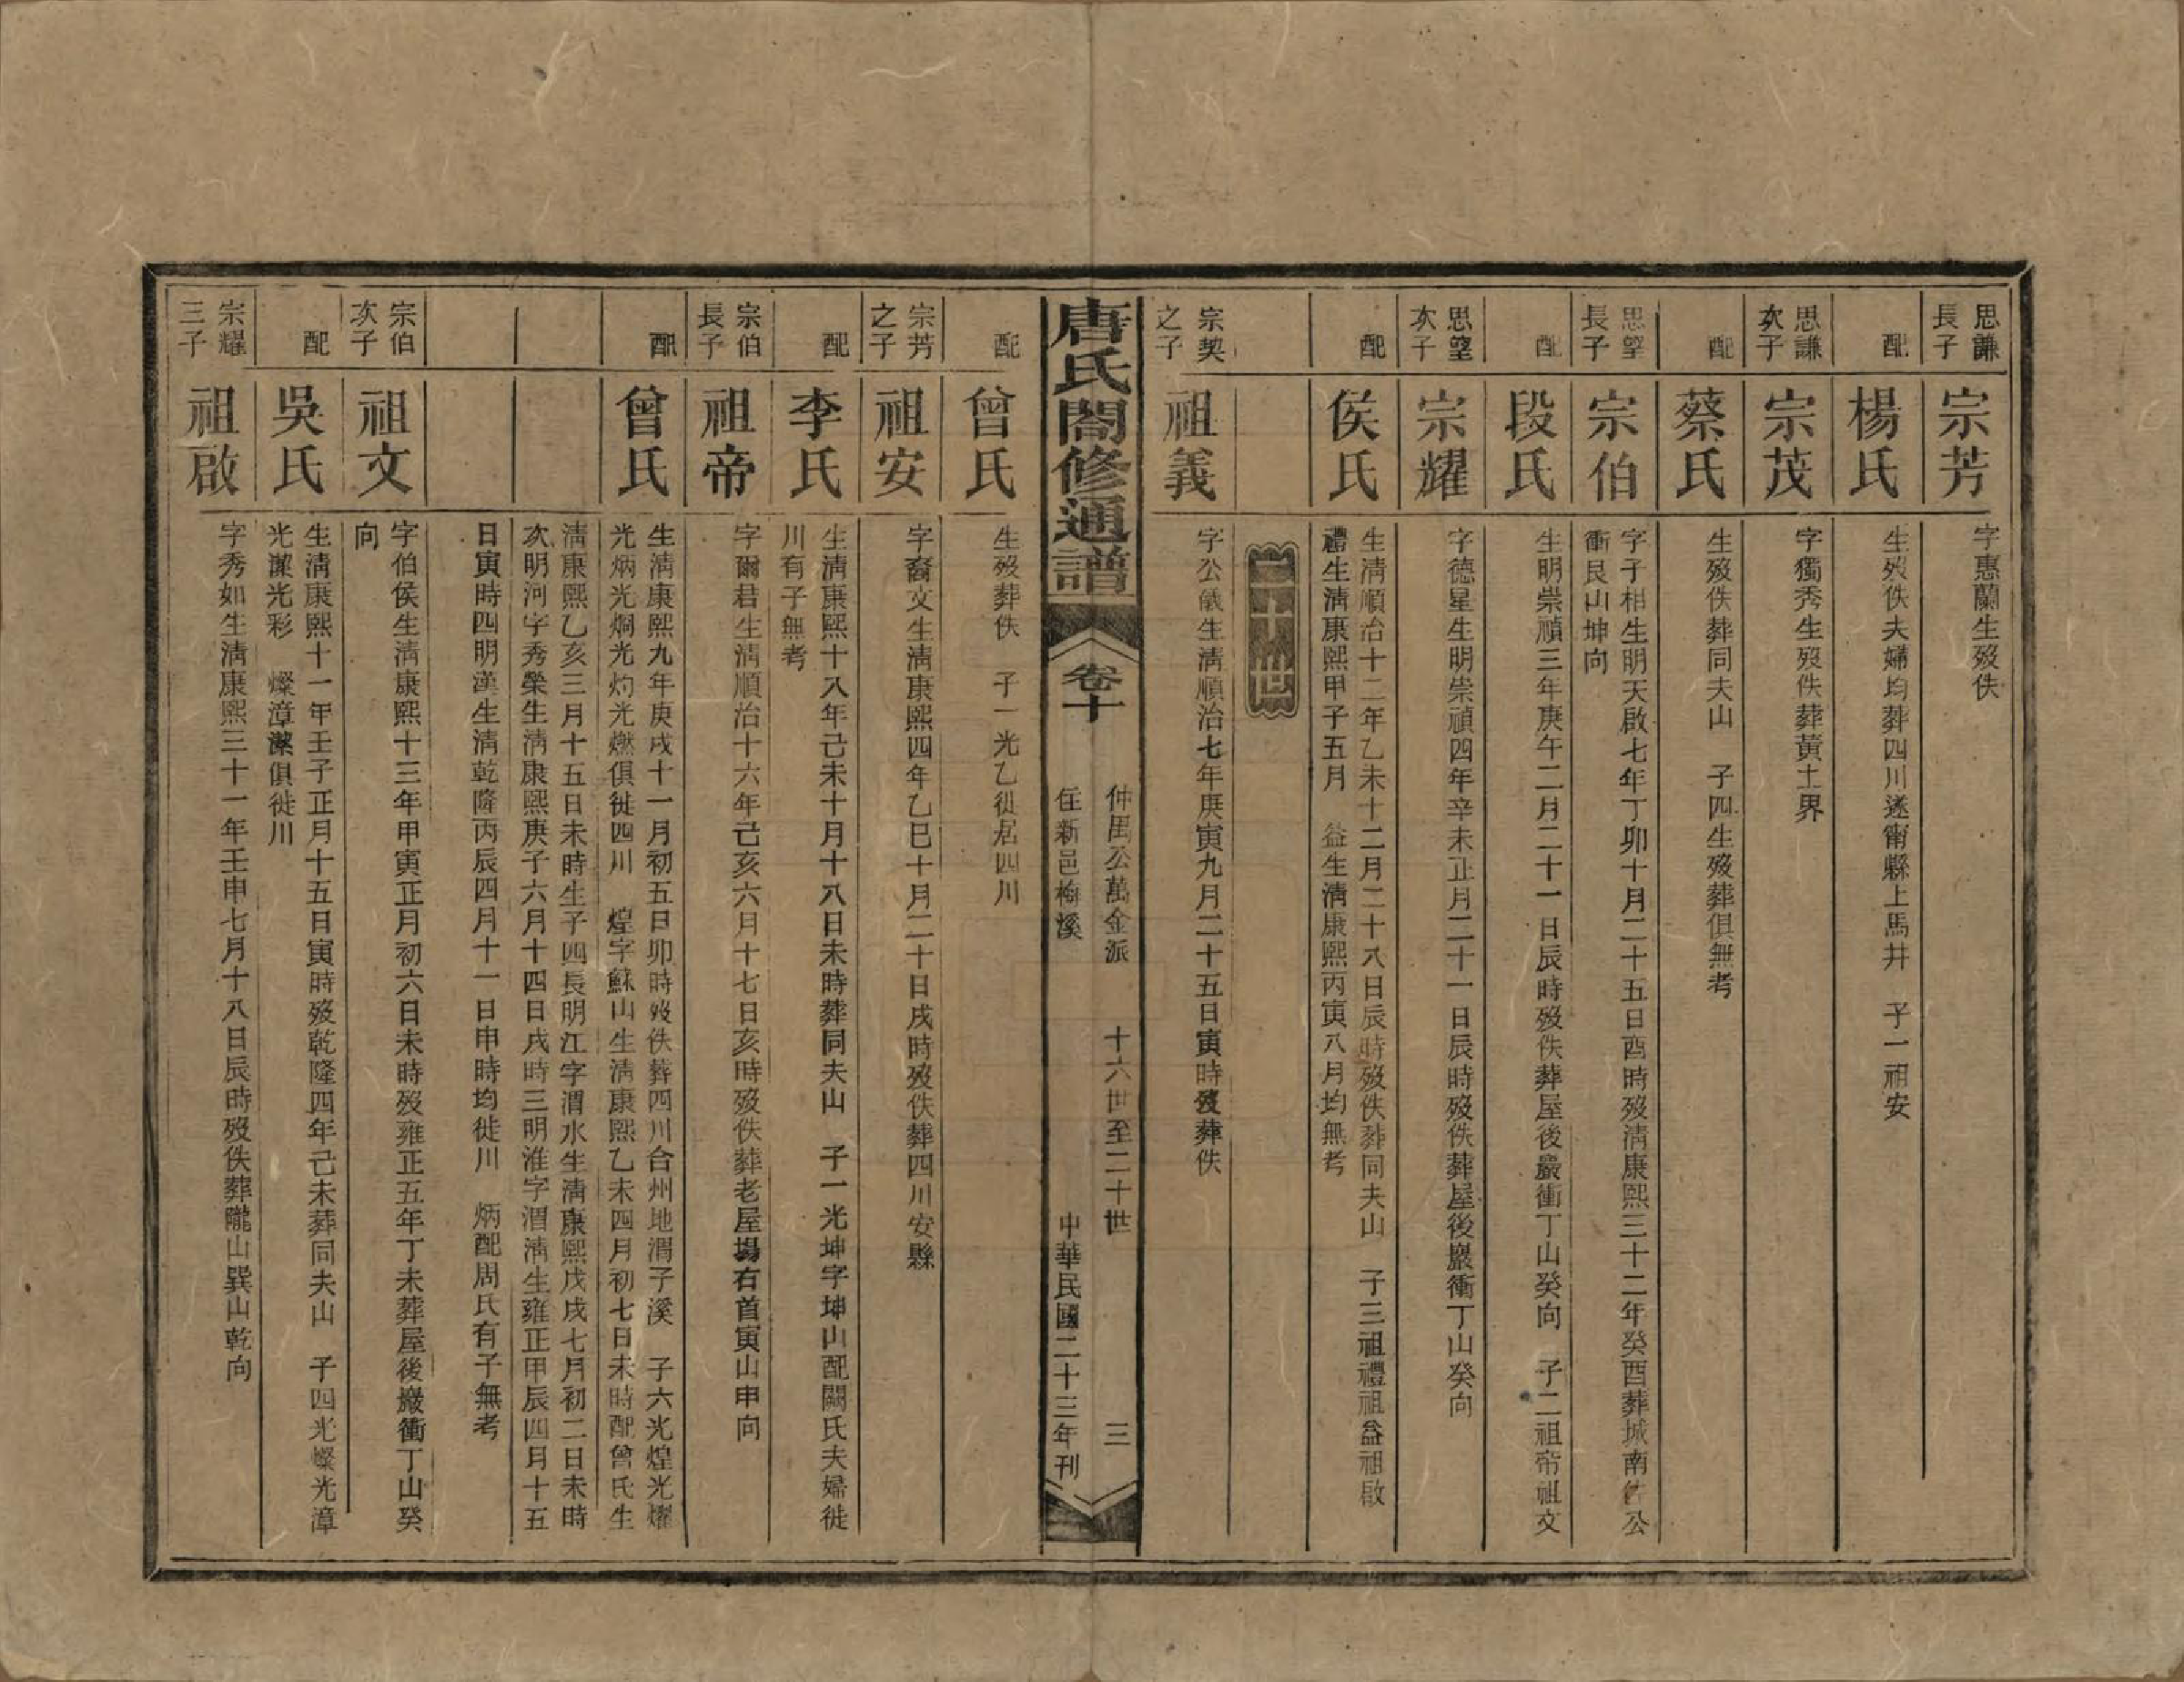 思謙長子
宗芳
字惠蘭生歿佚
配
楊氏
生歿佚夫婦均葬四川遂甯縣上馬井 子一祖安
思謙次子
宗茂
字獨秀生歿佚葬黃土界
配
蔡氏
生歿佚葬同夫山 子四生歿葬俱無考
思望長子
宗伯
字子相生明天啟七年丁卯十月二十五日酉時歿清康熙三十二年癸酉葬城南佐公
衝艮山坤向
配
段氏
生明崇禎三年庚午二月二十一日辰時歿佚葬屋後巖衝丁山癸向 子二祖帝祖文
思望次子
宗耀
字德星生明崇禎四年辛未正月二十一日辰時歿佚葬屋後巖衝丁山癸向
配
侯氏
生清順治十二年乙未十二月二十八日辰時歿佚葬同夫山 子三祖禮祖益祖啟
禮生清康熙甲子五月 益生清康熙丙寅八月均無考
二十世
宗契之子
祖義
字公儀生清順治七年庚寅九月二十五日寅時歿葬佚
唐氏閤修通譜
卷十
仲禺公萬金派 十六世至二十世 三
住新邑梅溪 中華民國二十三年刊
配
曾氏
生歿葬佚 子一光乙徙居四川
宗芳之子
祖安
字裔文生清康熙四年乙巳十月二十日戌時歿佚葬四川安縣
配
李氏
生清康熙十八年己未十月十八日未時葬同夫山 子一光坤字坤山配闕氏夫婦徙
川有子無考
宗伯長子
祖帝
字爾君生清順治十六年己亥六月十七日亥時歿佚葬老屋場右首寅山申向
配
曾氏
生清康熙九年庚戌十一月初五日卯時歿佚葬四川合州地渭子溪 子六光煌光燿
光炳光炯光灼光燃俱徙四川 煌字蘇山生清康熙乙未四月初七日未時配曾氏生
清康熙乙亥三月十五日未時生子四長明江字渭水生清康熙戊戌七月初二日未時
次明河字秀榮生清康熙庚子六月十四日戌時三明淮字渭清生雍正甲辰四月十五
日寅時四明漢生清乾隆丙辰四月十一日申時均徙川 炳配周氏有子無考
宗伯次子
祖文
字伯侯生清康熙十三年甲寅正月初六日未時歿雍正五年丁未葬屋後巖衝丁山癸
向
配
吳氏
生清康熙十一年壬子正月十五日寅時歿乾隆四年己未葬同夫山 子四光燦光漳
光潔光彩 燦漳潔俱徙川
宗耀三子
祖啟
字秀如生清康熙三十一年壬申七月十八日辰時歿佚葬隴山巽山乾向